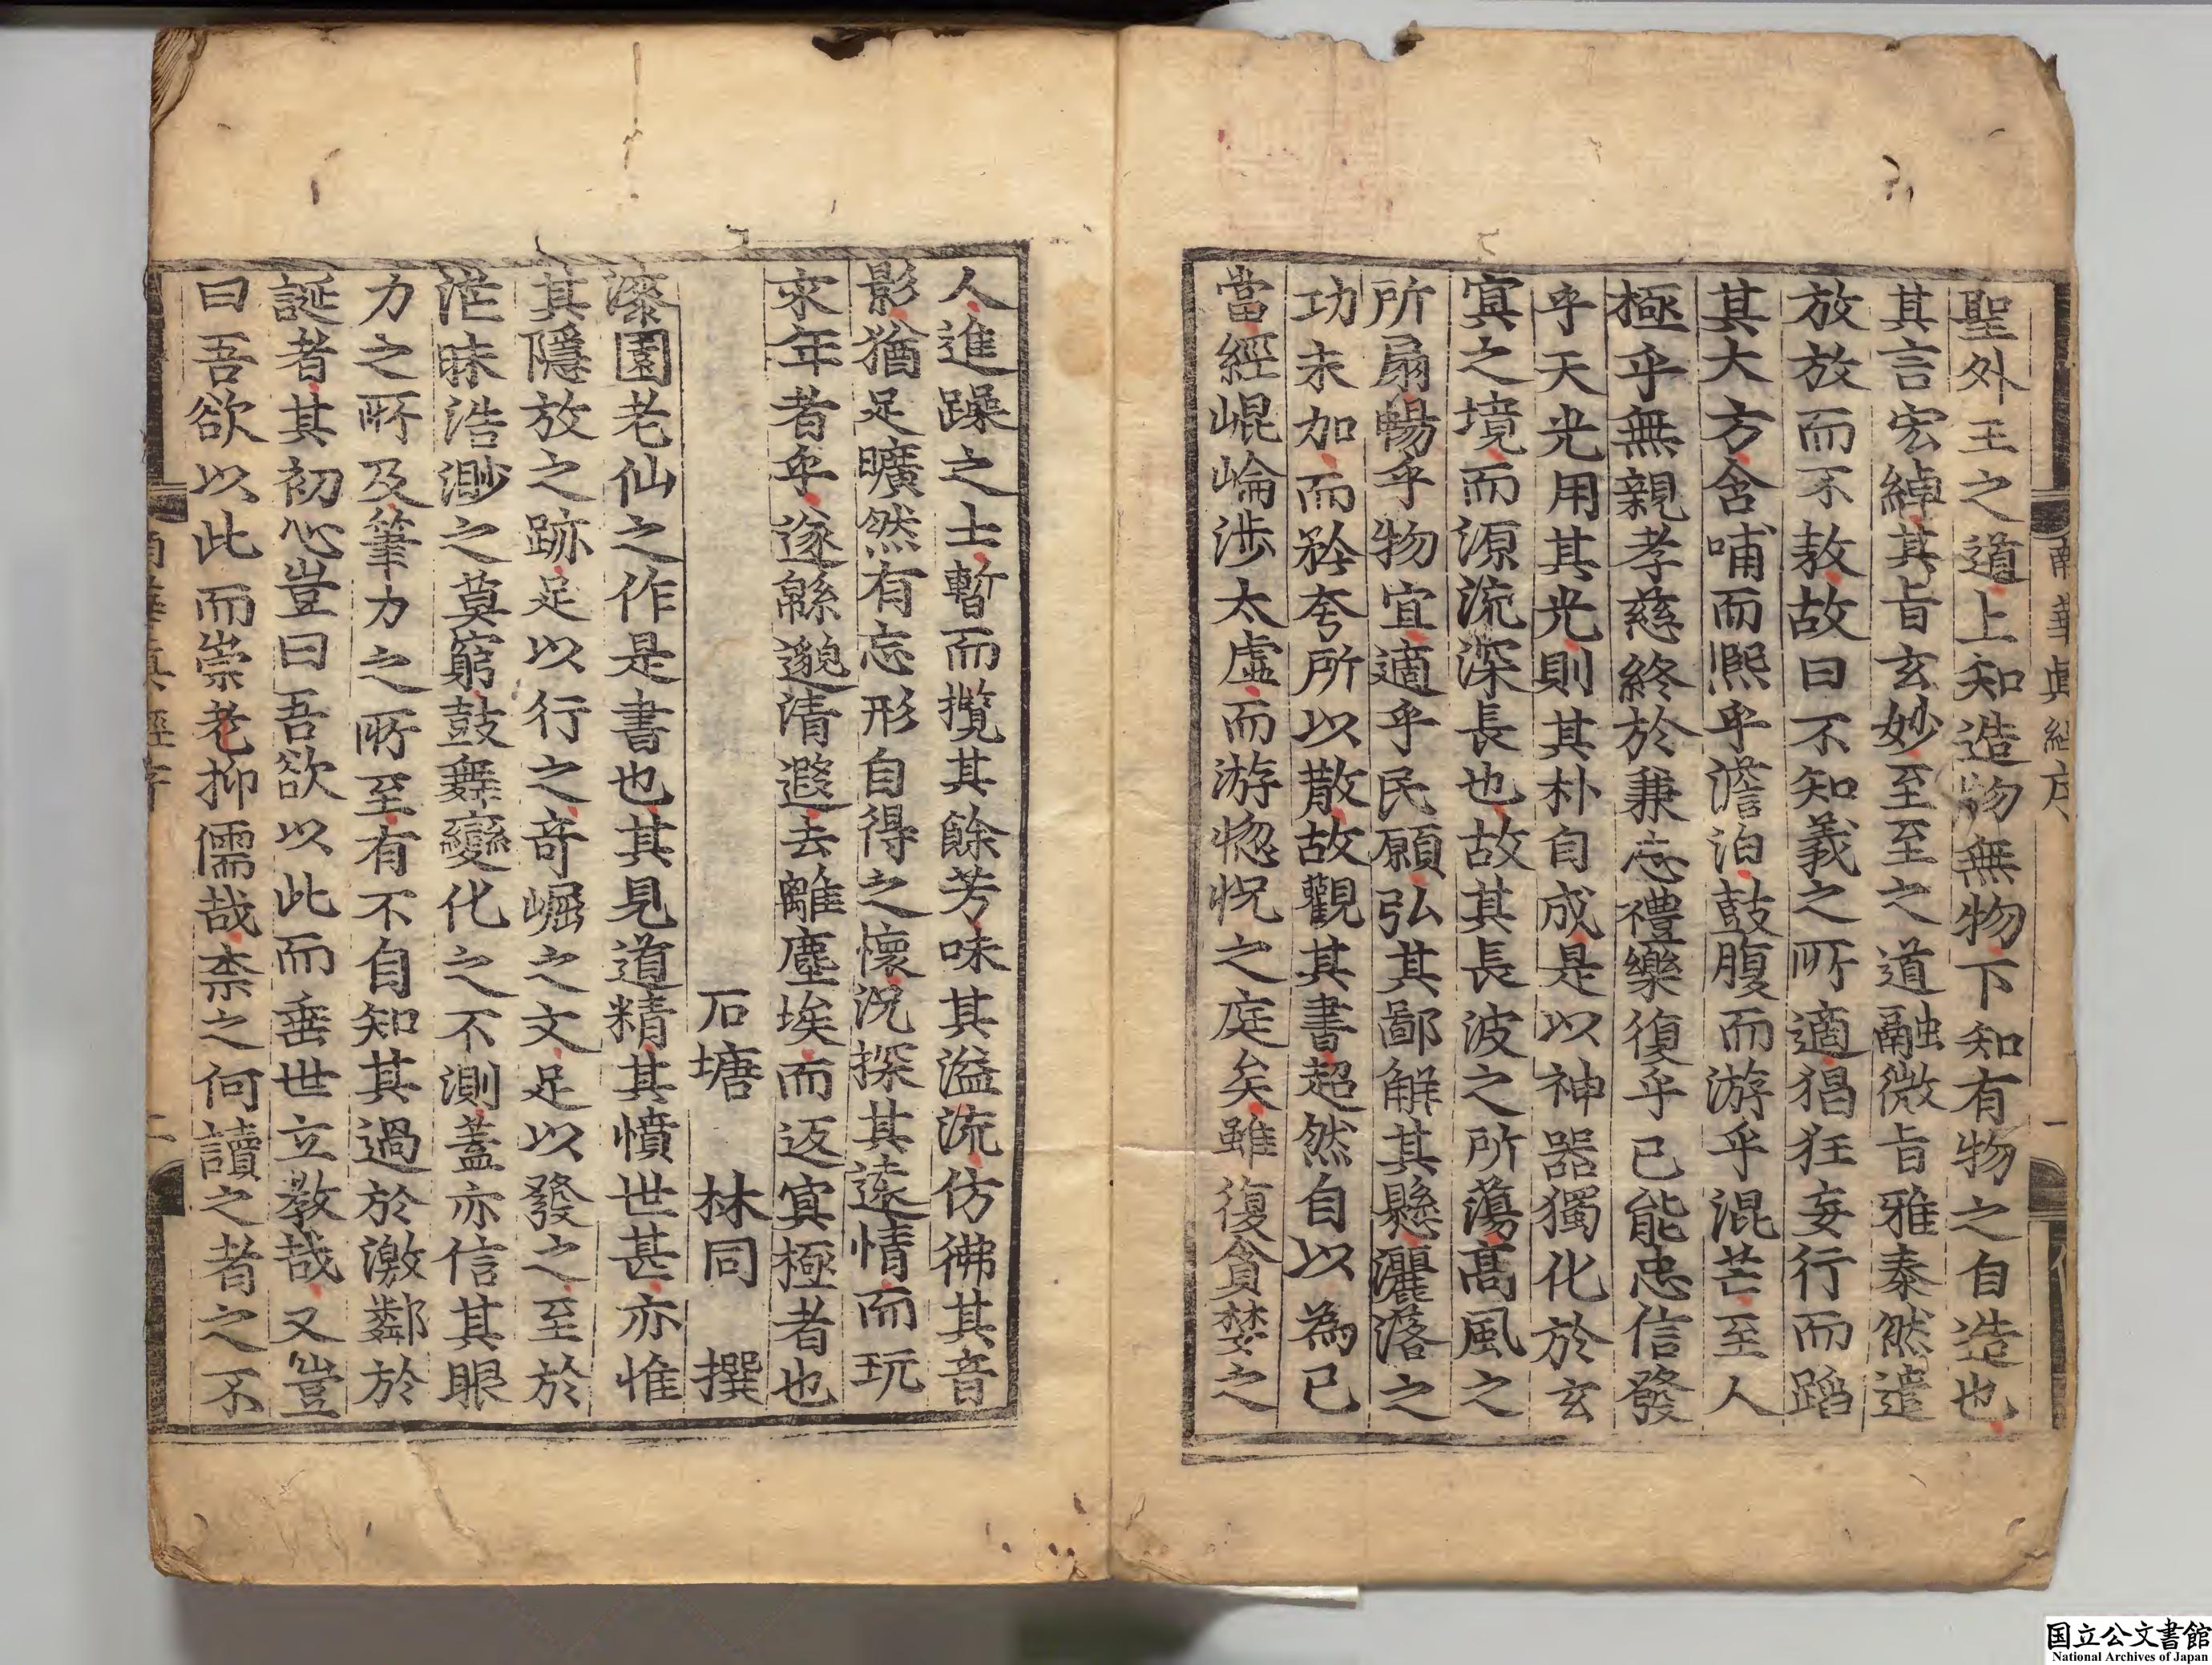 南華眞經序
一
聖外王之道上知造物無物下知有物之自造也
其言宏綽其旨玄妙至至之道融微旨雅泰然遣
放放而不敖故曰不知義之所適猖狂妄行而蹈
其大方含哺而熈乎澹泊鼓腹而游乎混芒至人
極乎無親孝慈終於兼忘禮樂復乎已能忠信發
乎天光用其光則其朴自成是以神器獨化於玄
冥之境而源流深長也故其長波之所蕩高風之
所扇暢乎物宜適乎民願弘其鄙解其懸灑落之
功未加而矜夸所以散故觀其書超然自以為已
當經崐崘涉太虛而游惚怳之庭矣雖復貪婪之
人進躁之士暫而攬其餘芳味其溢流仿彿其音
影猶足曠然有忘形自得之懷況探其遠情而玩
永年者乎遂緜邈清遐去離塵埃而返冥極者也
石塘 林同 撰
漆園老仙之作是書也其見道精其憤世甚亦惟
其隱放之跡足以行之奇崛之文足以發之至於
茫昧浩渺之莫窮鼓舞變化之不測蓋亦信其眼
力之所及筆力之所至有不自知其過於激鄰於
誕者其初心豈曰吾欲以此而垂世立教哉又豈
曰吾欲以此而崇老抑儒哉柰之何讀之者之不
南華眞經序
二
国立公文書館
National Archives of Japan